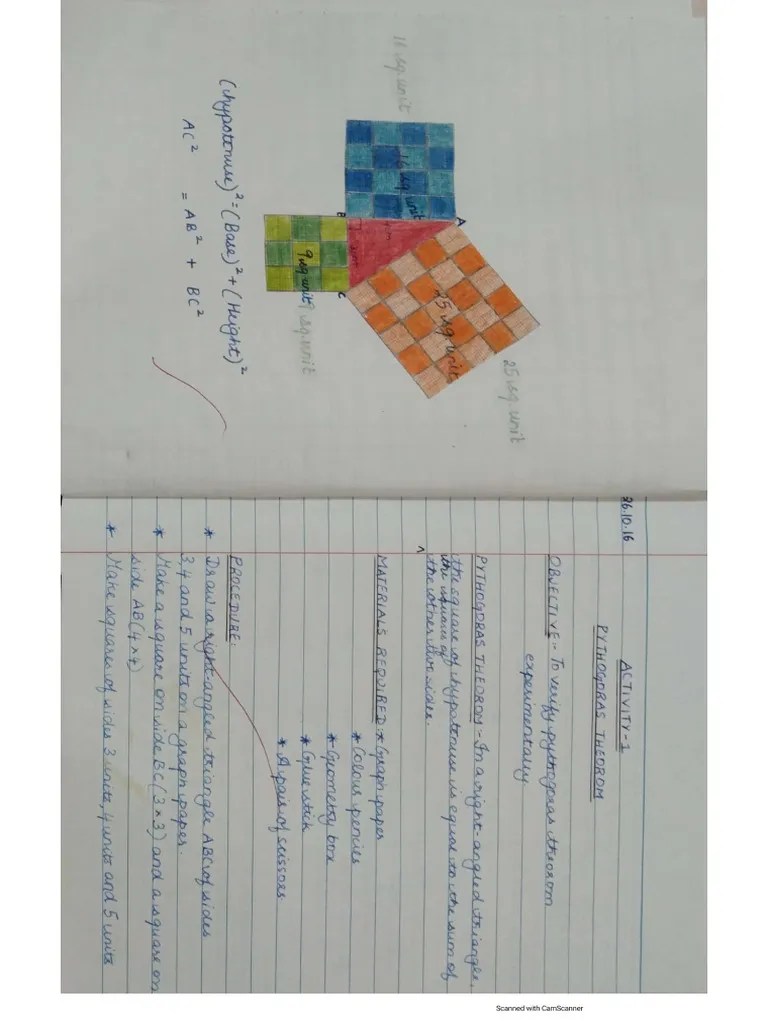 26.10.16
ACTIVITY-1
PYTHOGORAS THEOROM
OBJECTIVE:- To verify pythogoras theorom
experimentally
PYTHOGORAS THEOROM:- In a right-angled triangle,
the square of hypotenuse is equal to the sum of
the squares of
^ the other two sides.
MATERIALS REQUIRED:* Graph paper
* Colour pencies
* Geometry box
* Glue stick
* A pair of scissors
PROCEDURE:
* Draw a right-angled triangle ABC of sides
3,4 and 5 units on a graph paper.
* Make a square on side BC (3×3) and a square on
side AB (4×4)
* Make squares of sides 3 units, 4 units and 5 units
25 sq. unit
25 sq unit
A
16 sq. unit
16 sq unit
B
C
9 sq unit
9 sq. unit
(hypotenuse)² = (Base)² + (Height)²
AC² = AB² + BC²
Scanned with CamScanner